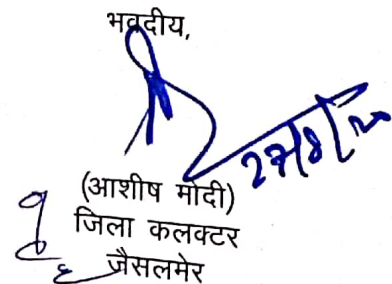 भवदीय,
27/8/20
(आशीष मोदी)
जिला कलक्टर
जैसलमेर